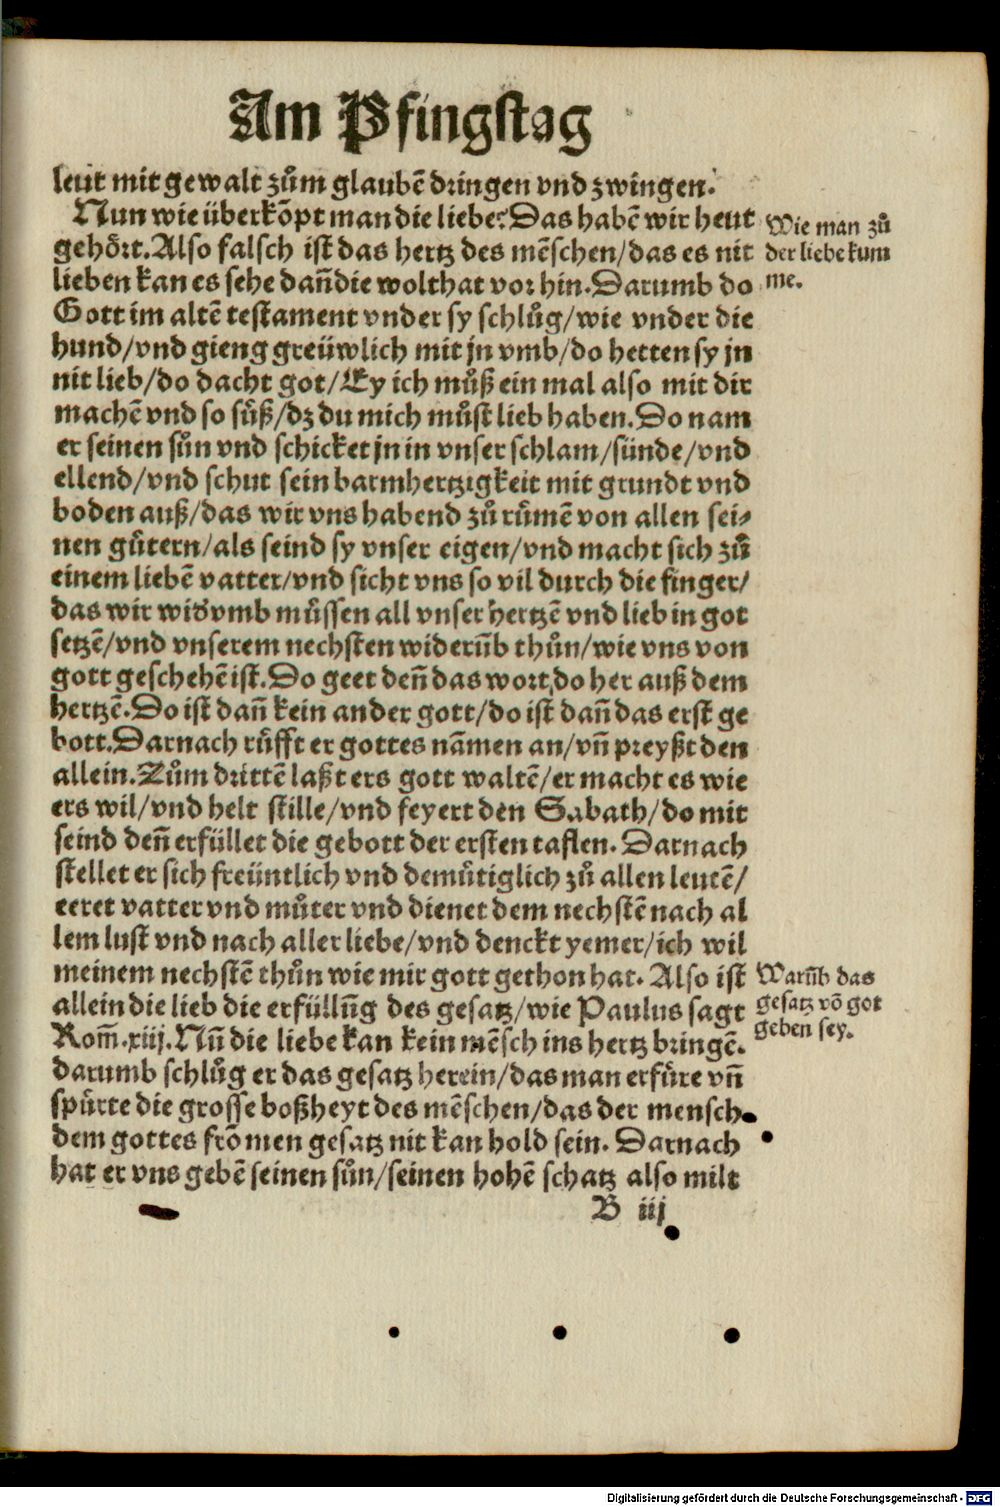 Am Pfingstag
leut mit gewalt zům glaubẽ dringen vnd zwingen.
Nun wie überkõpt man die liebe? Das habẽ wir heut
gehört. Also falsch ist das hertz des mẽschen/das es nit
lieben kan es sehe dañ die wolthat vor hin. Darumb do
Gott im altẽ testament vnder sy schlůg/wie vnder die
hund/vnd gieng greüwlich mit jn vmb/do hetten sy jn
nit lieb/do dacht got/Ey ich můß ein mal also mit dir
machẽ vnd so sůß/dz du mich můst lieb haben. Do nam
er seinen sůn vnd schicket jn in vnser schlam/sünde/vnd
ellend/vnd schut sein barmhertzigkeit mit grundt vnd
boden auß/das wir vns habend zů růmẽ von allen sei⸗
nen gůtern/als seind sy vnser eigen/vnd macht sich zů
einem liebẽ vatter/vnd sicht vns so vil durch die finger/
das wir widvmb můssen all vnser hertzẽ vnd lieb in got
setzẽ/vnd vnserem nechsten widerũb thůn/wie vns von
gott geschehẽ ist. Do geet deñ das wort do her auß dem
hertzẽ. Do ist dañ kein ander gott/do ist dañ das erst ge
bott. Darnach růfft er gottes nãmen an/vñ preyßt den
allein. Zům drittẽ laßt ers gott waltẽ/er macht es wie
ers wil/vnd helt stille/vnd feyert den Sabath/do mit
seind deñ erfüllet die gebott der ersten taflen. Darnach
stellet er sich freüntlich vnd demůtiglich zů allen leutẽ/
eeret vatter vnd můter vnd dienet dem nechstẽ nach al
lem lust vnd nach aller liebe/vnd denckt yemer/ich wil
meinem nechstẽ thůn wie mir gott gethon hat. Also ist
allein die lieb die erfüllũg des gesatz/wie Paulus sagt
Rom̃. xiij. Nũ die liebe kan kein mẽsch ins hertz bringẽ.
darumb schlůg er das gesatz herein/das man erfůre vñ
spürte die grosse boßheyt des mẽschen/das der mensch
dem gottes frõmen gesatz nit kan hold sein. Darnach
hat er vns gebẽ seinen sůn/seinen hohẽ schatz also milt
B iij
Wie man zů
der liebe kum
me.
Warũb das
gesatz võ got
geben sey.
Digitalisierung gefördert durch die Deutsche Forschungsgemeinschaft - DFG